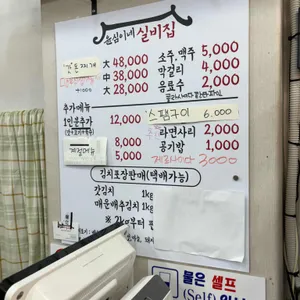 윤심이네 실비집
大 48,000
中 38,000
小 28,000
소주, 맥주 5,000
막걸리 4,000
음료수 2,000
추가메뉴
1인분추가 12,000
8,000
계절메뉴 5,000
스팸구이 6,000
라면사리 2,000
공기밥 1,000
3000
김치포장판매(택배가능)
갓김치 1kg
매운배추김치 1kg
※ 2kg부터
물은 셀프
(Self)